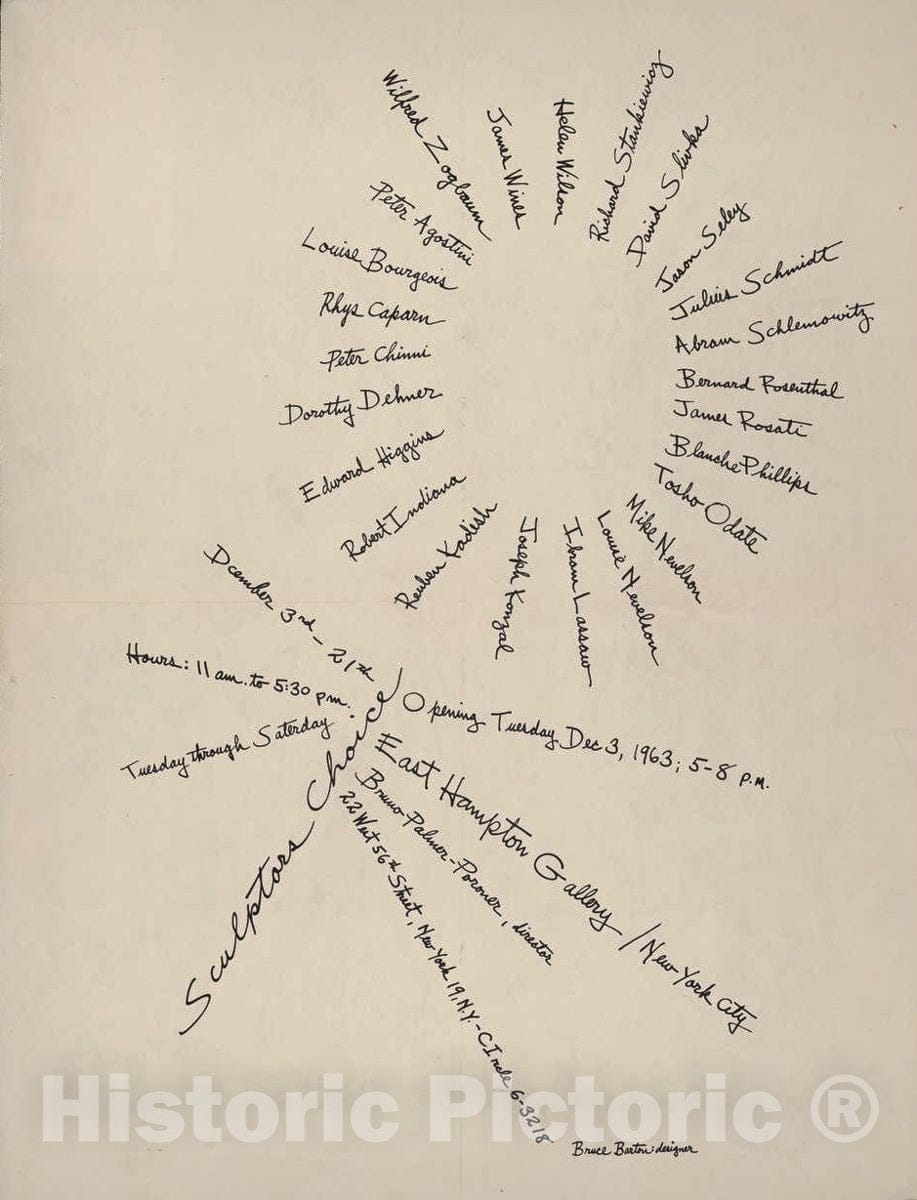 Peter Agostini
Louise Bourgeois
Rhys Caparn
Peter Chinni
Dorothy Dehner
Edward Higgins
Robert Indiana
Reuben Kadish
Joseph Konzal
Ibram Lassaw
Louise Nevelson
Mike Nevelson
Tosho Odate
Blanche Phillips
James Rosati
Bernard Rosenthal
Abram Schlemowitz
Julius Schmidt
Jason Seley
David Slivka
Richard Stankiewicz
Helen Wilson
James Wines
Wilfred Zogbaum
Dcember 3rd - 21th
Hours: 11 am. to 5:30 pm.
Tuesday through Saterday
Sculptors Choice
Opening Tuesday Dec 3, 1963; 5-8 P.M.
East Hampton Gallery / New York City
Bruno Palmer-Poroner, director
22 West 56th Street, New York 19, N.Y. - CIrcle 6-3218
Bruce Barton: designer
Historic Pictoric ®